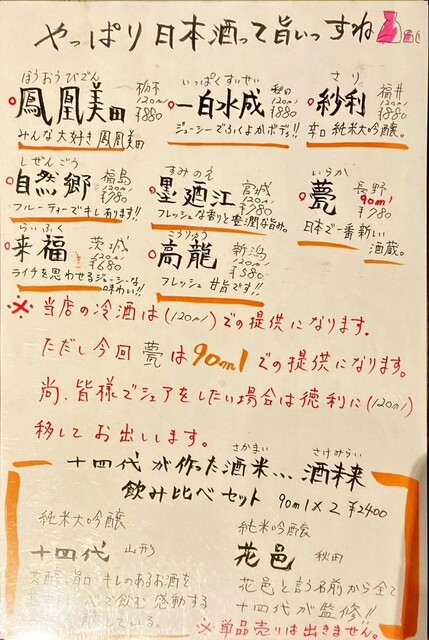 やっぱり日本酒って旨いっすね
ほうおうびでん
鳳凰美田 栃木 120ml ¥880
みんな大好き鳳凰美田
いっぱくすいせい
一白水成 秋田 120ml ¥880
ジューシーでふくよかボディ!!
さり
紗利 福井 120ml ¥880
辛口純米大吟醸。
しぜんごう
自然郷 福島 120ml ¥780
フルーティーでキレあります!!
すみのえ
墨廼江 宮城 120ml ¥780
フレッシュな香りと豊潤な旨み。
いらか
甍 長野 90ml ¥780
日本で一番新しい
酒蔵。
らいふく
来福 茨城 120ml ¥680
ライチを思わせるジューシーな
味わい!!
こうりゅう
高龍 新潟 120ml ¥580
フレッシュ甘旨です!!
※当店の冷酒は(120ml)での提供になります。
ただし今回甍は90mlでの提供になります。
尚、皆様でシェアをしたい場合は徳利に(120ml)
移してお出しします。
さかまい さけみらい
十四代が作った酒米…酒未来
飲み比べセット 90ml×2 ¥2400
純米大吟醸
十四代 山形
旨口 キレのあるお酒を
で飲む感動する
している。
純米吟醸
花邑 秋田
花邑と言う名前から全て
十四代が監修!!
※単品売りは出きません